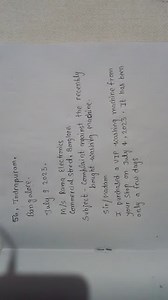 54, Indrapuram,
Bangalore.
July 9 2023.
M/s Rama Electronics
Commercial Street, Banglore
Subject - Complaint against the recently
bought washing machine
Sir/madam
I purchased a VIP washing machine from
your shop on July 4, 2023. It has been
only a few days